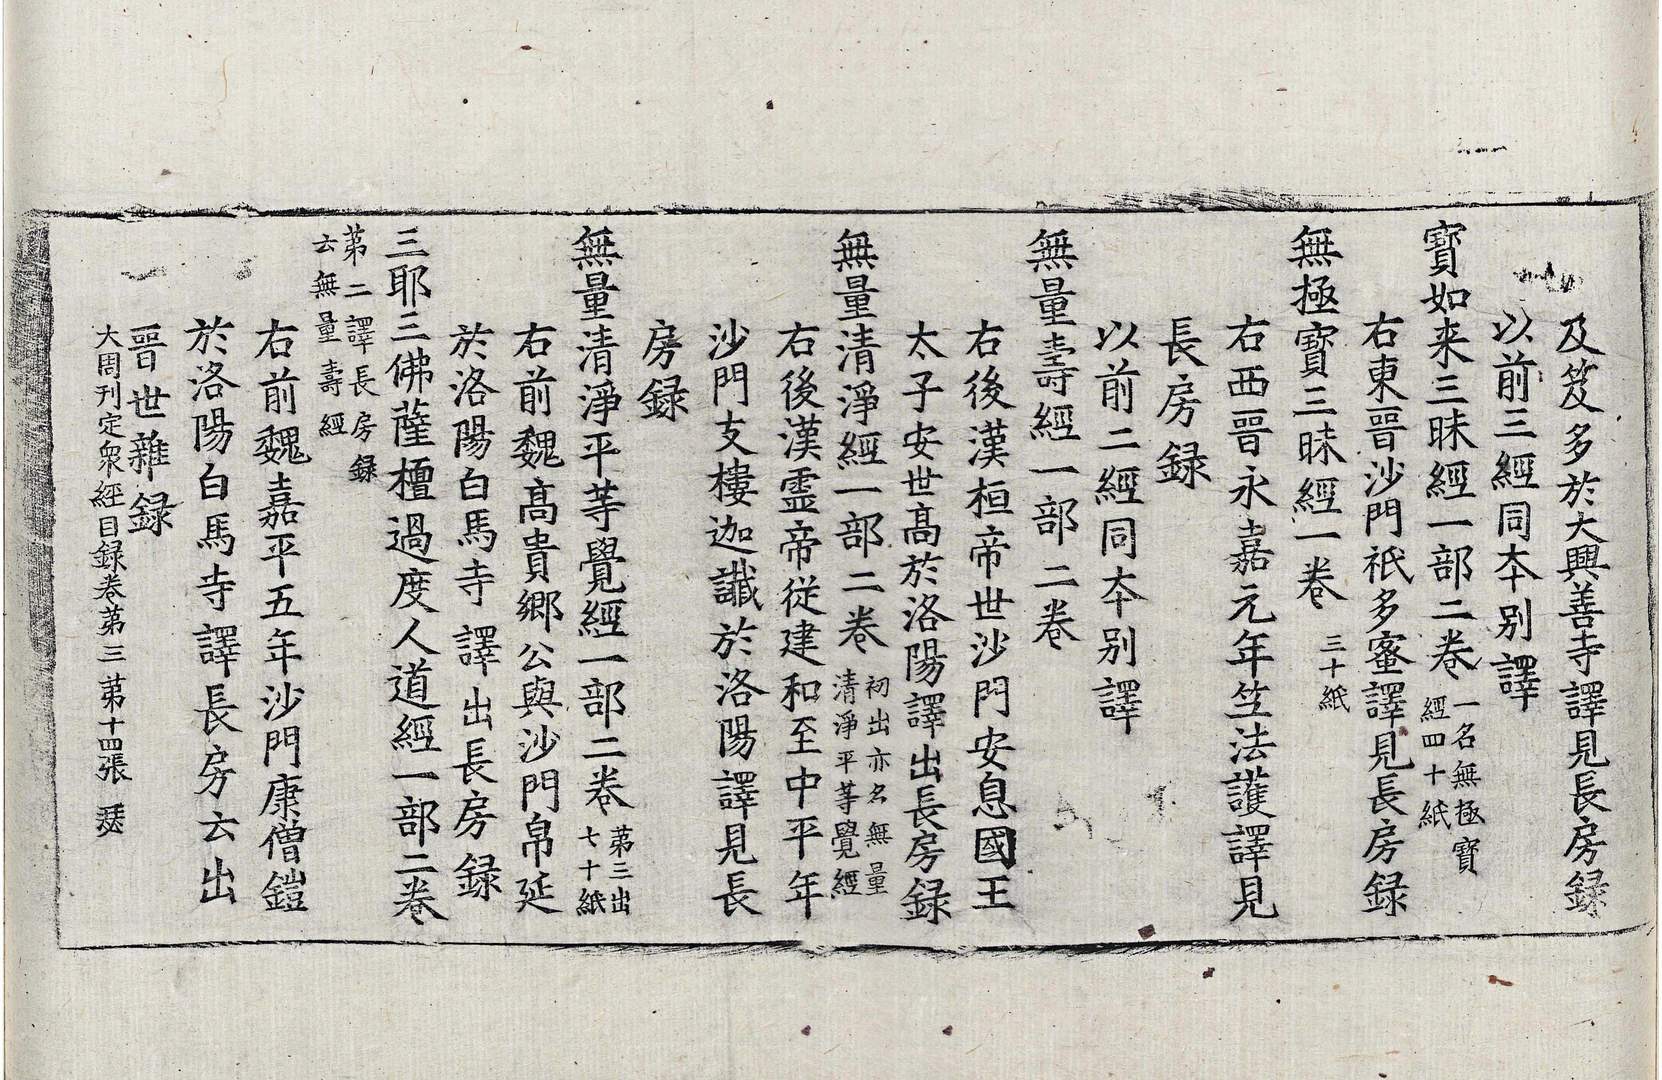 及笈多於大興善寺譯見長房録
以前三經同本别譯
寶如来三昧經一部二卷一名無極寶
經四十紙
右東晉沙門祇多蜜譯見長房録
無極寶三昧經一卷三十紙
右西晉永嘉元年竺法護譯見
長房録
以前二經同本别譯
無量壽經一部二卷
右後漢桓帝世沙門安息國王
太子安世髙於洛陽譯出長房録
無量清淨經一部二卷初出亦名無量
清淨平等覺經
右後漢靈帝從建和至中平年
沙門支樓迦讖於洛陽譯見長
房録
無量清淨平等覺經一部二卷第三出
七十紙
右前魏髙貴鄉公與沙門帛延
於洛陽白馬寺譯出長房録
三耶三佛薩檀過度人道經一部二卷
第二譯長房録
云無量壽經
右前魏嘉平五年沙門康僧鎧
於洛陽白馬寺譯長房云出
晉世雜録
大周刊定衆經目録卷第三 第十四張 瑟